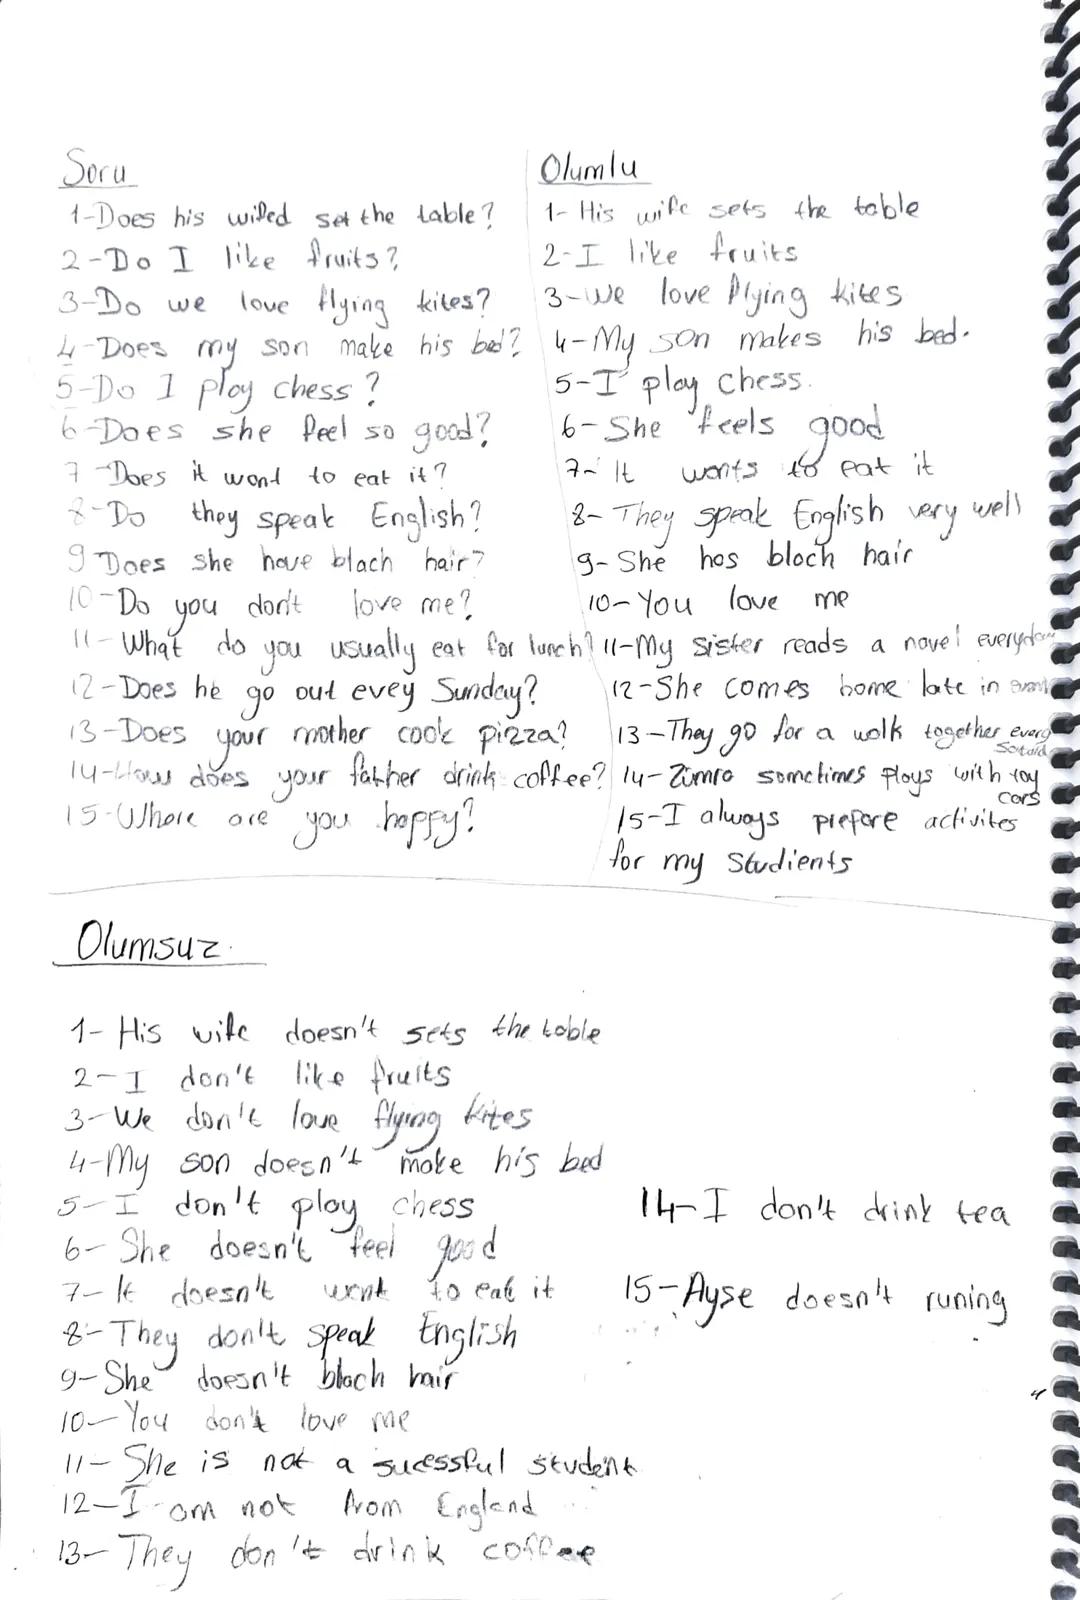 Soru
1-Does his wifed set the table?
2-Do I like fruits?
3-Do we love flying kites?
4-Does my son make his bed?
5-Do I play chess?
6-Does she feel so good?
7-Does it want to eat it?
8-Do they speak English?
9 Does she have blach hair?
10-Do you don't love me?
11-What do you usually eat for lunch?
12-Does he go out evey Sunday?
13-Does your mother cook pizza?
14-How does your father drink coffee?
15-Where are you happy?
Olumlu
1- His wife sets the table
2-I like fruits
3-We love flying kites
4-My son makes his bed.
5-I play chess.
6-She feels good
7- It wants to eat it
8-They speak English very well
9-She has blach hair
10-You love me
11-My sister reads a novel everyday
12-She comes home late in
13-They go for a walk together every
14-Zümra sometimes plays with toy
cars
15-I always prefare activites
for my studients
Olumsuz.
1- His wife doesn't sets the table
2-I don't like fruits
3-We don't love flying kites
4-My son doesn't make his bed
5-I don't play chess
6-She doesn't feel good
7-It doesn't want to eat it
8-They don't speak English
9-She doesn't blach hair
10-You don't love me
11-She is not a sucessful student
12-I am not from England
13-They don't drink coffee
14-I don't drink tea
15-Ayşe doesn't runing